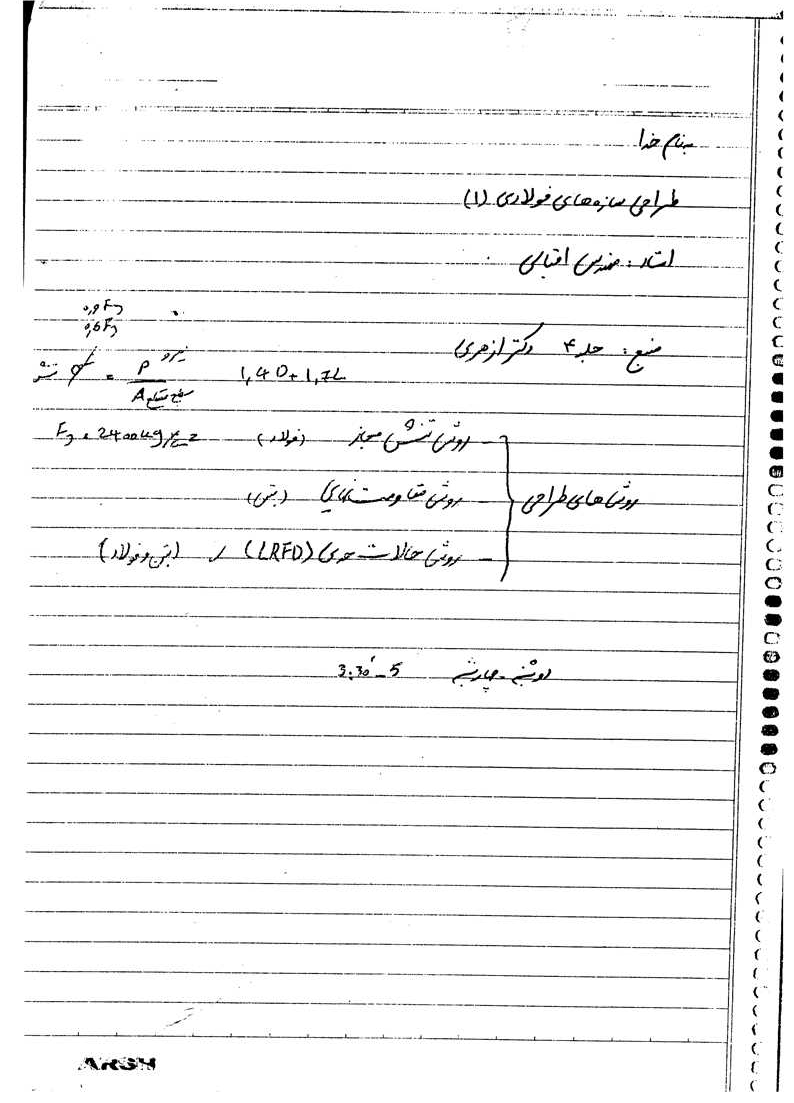 بنام خدا
طراحی سازه‌های فولادی (۱)
استاد: مهندس اقبالی
0,9 Fy
0,6 Fy
منبع: جلد ۴ دکتر ازهری
1,4D+1,7L
نیرو P
سطح مقطع A
= تنش
روش‌های طراحی
- روش تنش مجاز (فولاد) Fy = 2400 kg/cm2
- روش مقاومت نهایی (بتن)
- روش حالات حدی (LRFD) (بتن و فولاد)
دوشنبه - چهارشنبه 5 - 3:30'
ARSH